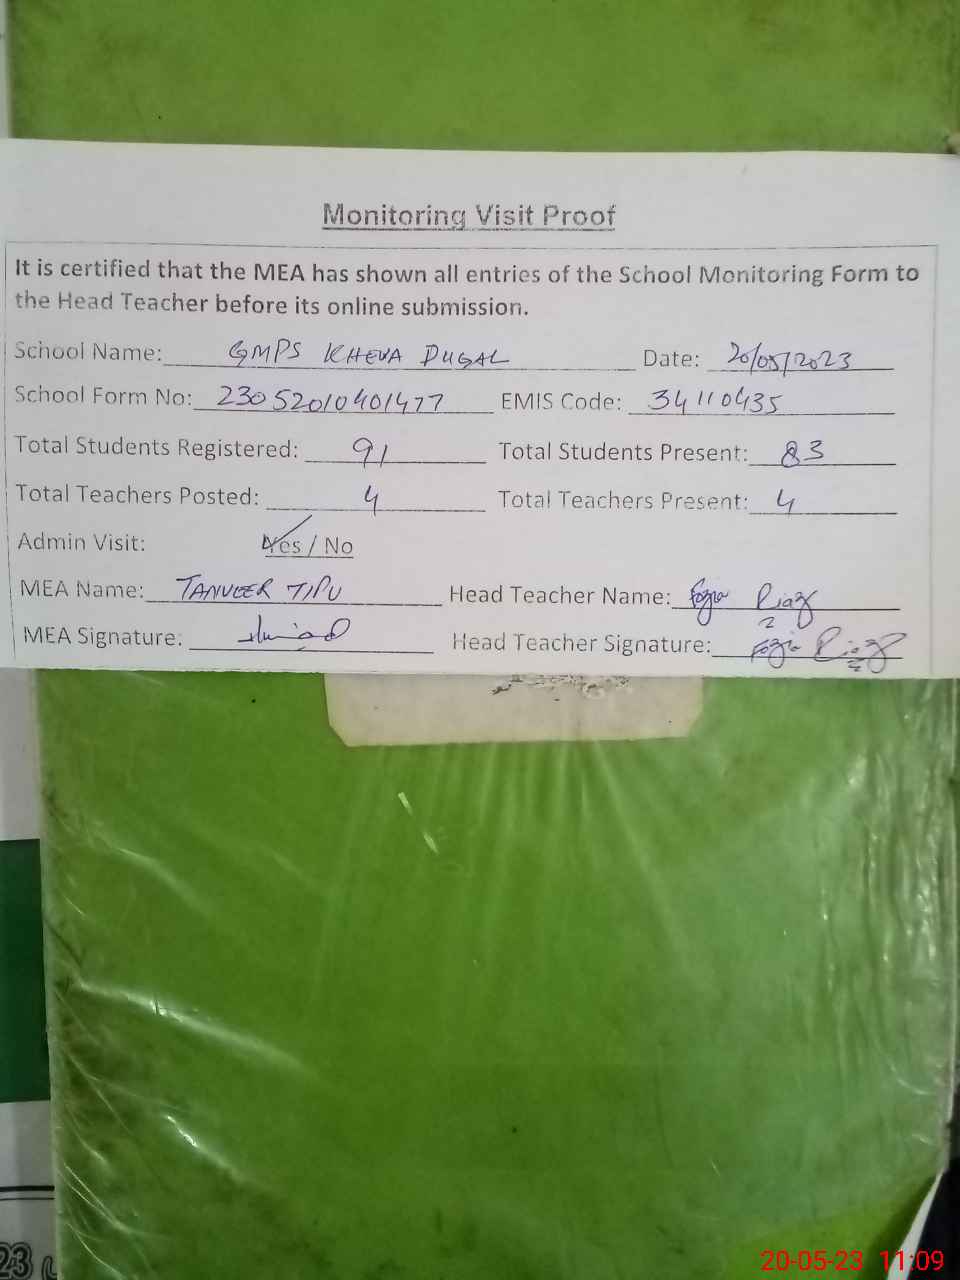 Monitoring Visit Proof
It is certified that the MEA has shown all entries of the School Monitoring Form to
the Head Teacher before its online submission.
School Name: GMPS KHEVA DUGAL Date: 20/05/2023
School Form No: 23052010401477 EMIS Code: 34110435
Total Students Registered: 91 Total Students Present: 83
Total Teachers Posted: 4 Total Teachers Present: 4
Admin Visit: Yes / No
MEA Name: TANVEER TIPU Head Teacher Name: Fozia Riaz
MEA Signature: Head Teacher Signature: Fozia Riaz
23
20-05-23 11:09